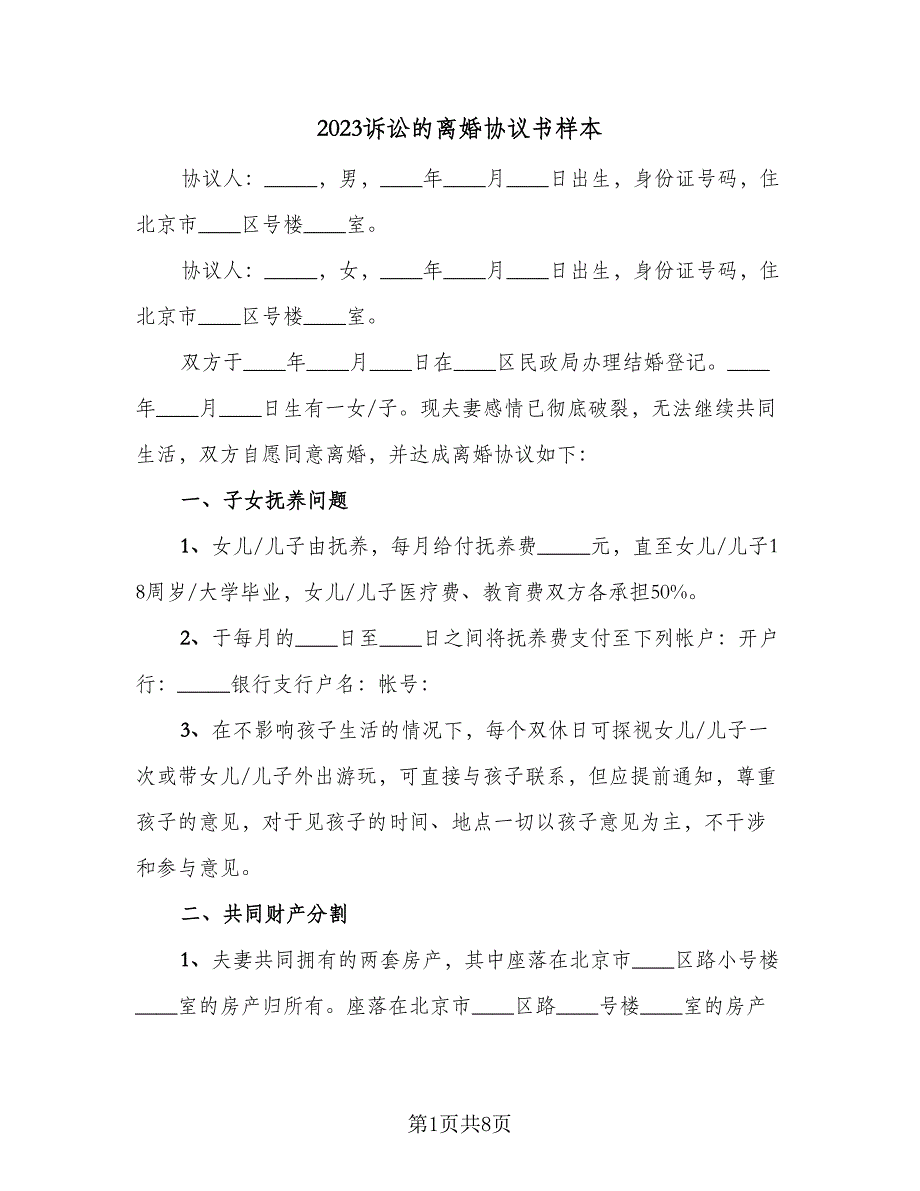 2023诉讼的离婚协议书样本
协议人：_____，男，____年____月____日出生，身份证号码，住
北京市____区号楼____室。
协议人：_____，女，____年____月____日出生，身份证号码，住
北京市____区号楼____室。
双方于____年____月____日在____区民政局办理结婚登记。____
年____月____日生有一女/子。现夫妻感情已彻底破裂，无法继续共同
生活，双方自愿同意离婚，并达成离婚协议如下：
一、子女抚养问题
1、女儿/儿子由抚养，每月给付抚养费_____元，直至女儿/儿子1
8周岁/大学毕业，女儿/儿子医疗费、教育费双方各承担50%。
2、于每月的____日至____日之间将抚养费支付至下列帐户：开户
行：_____银行支行户名：帐号：
3、在不影响孩子生活的情况下，每个双休日可探视女儿/儿子一
次或带女儿/儿子外出游玩，可直接与孩子联系，但应提前通知，尊重
孩子的意见，对于见孩子的时间、地点一切以孩子意见为主，不干涉
和参与意见。
二、共同财产分割
1、夫妻共同拥有的两套房产，其中座落在北京市____区路小号楼
____室的房产归所有。座落在北京市____区路____号楼____室的房产
第1页共8页